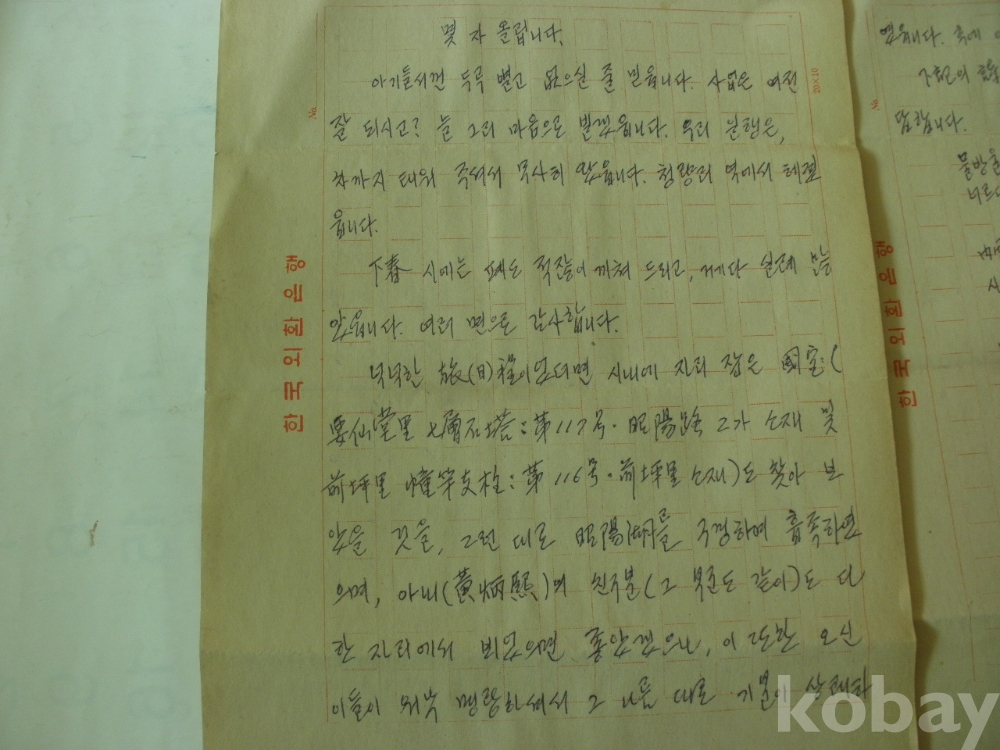 몇 자 올립니다.
아기들서껀 두루 별고 없으실 줄 믿읍니다. 사업은 여전
잘 되시고? 늘 그리 마음으로 빌겠읍니다. 우리 일행은,
차까지 태워 주셔서 무사히 왔읍니다. 청량리 역에서 헤졌
읍니다.
下春 시에는 폐도 적잖이 끼쳐 드리고, 게다 실례 많
았읍니다. 여러 면으로 감사합니다.
넉넉한 旅(日)程이었더면 시내에 자리 잡은 國宝(
要仙堂里 七層石塔:第117号·昭陽路 2가 소재 및
前坪里 幢竿支柱:第116号·前坪里 소재)도 찾아 보
았을 것을, 그런 대로 昭陽湖를 구경하며 흡족하였
으며, 아내(黃炳熙)의 친구분(그 부군도 같이)도 다
한 자리에서 뵈었으면 좋았겠으나, 이 또한 오신
이들이 워낙 명랑하셔서 그 나름 대로 기분이 상쾌하
한국외환은행
20×10
었읍니다. 후에
답합니다.
물방울
한국외환은행
kobay